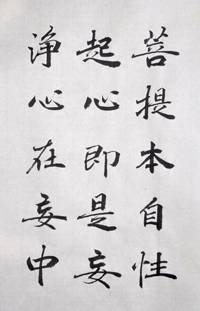 菩提本自性
起心即是妄
净心在妄中